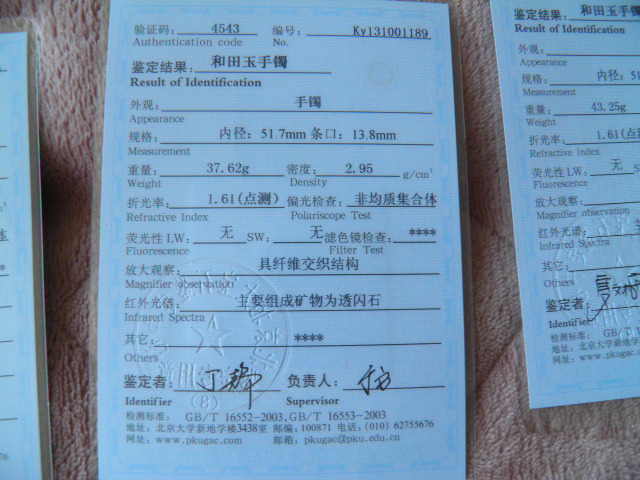 验证码: 4543 编号: Ky131001189
Authentication code No.
鉴定结果: 和田玉手镯
Result of Identification
外观: 手镯
Appearance
规格: 内径: 51.7mm 条口: 13.8mm
Measurement
重量: 37.62g 密度: 2.95 g/cm³
Weight Density
折光率: 1.61(点测) 偏光检查: 非均质集合体
Refractive Index Polariscope Test
荧光性 LW: 无 SW: 无 滤色镜检查: ****
Fluorescence Filter Test
放大观察: 具纤维交织结构
Magnifier observation
红外光谱: 主要组成矿物为透闪石
Infrared Spectra
其它: ****
Others
鉴定者: 负责人:
Identifier Supervisor
检测标准: GB/T 16552-2003,GB/T 16553-2003
地址: 北京大学新地学楼3438室 邮编: 100871 电话: (010) 62755676
网址: www.pkugac.com 邮箱: pkugac@pku.edu.cn
鉴定结果: 和田玉手
Result of Identification
外观:
Appearance
规格: 内径: 51
Measurement
重量: 43.25g
Weight
折光率: 1.61(点
Refractive Index
荧光性 LW: 无
Fluorescence
放大观察:
Magnifier observation
红外光谱:
Infrared Spectra
其它:
Others
鉴定者:
Identifier
检测标准: GB/T
地址: 北京大学新地学
网址: www.pkugac